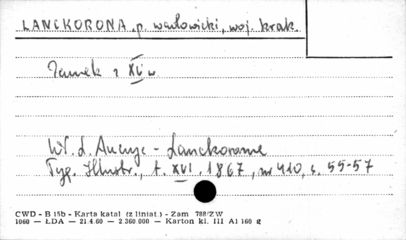 LANCKORONA, p. wadowicki, woj. krak.
Zamek z XV w
W. L. Anczyc - Lanckorona
Typ. Illustr., t. XVI, 1867, nr 410, s. 55-57
CWD - B 15b - Karta katal (z liniat.) - Zam 788/ZW
1060 — ŁDA — 21.4.60 — 2.360.000 — Karton kl. III A1 160 g